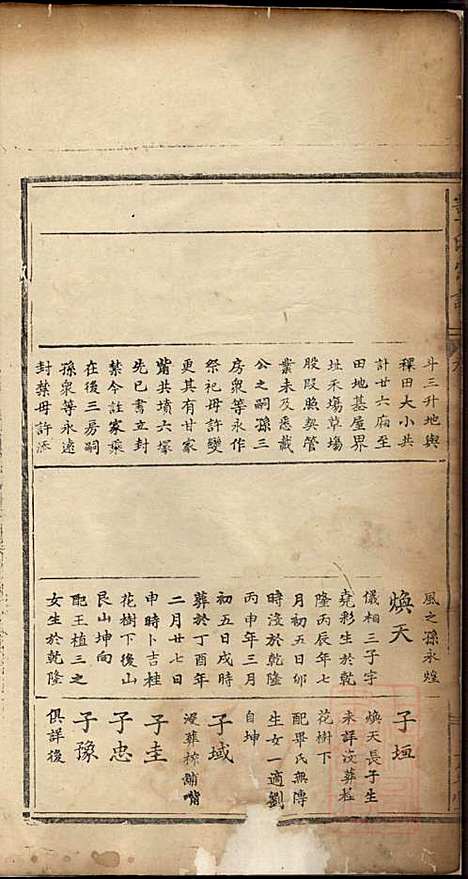 斗三升地與
穉田大小共
計廿六廟至
田地基屋界
址禾塲草塲
股叚照契管
業未及悉載
公之嗣孫三
房衆等永作
祭祀毋許變
更其有甘家
觜共墳六塚
先已書立封
禁今註家乘
在後三房嗣
孫衆等永遠
封禁毋許添
風之孫永煌
煥天
儀相三子字
堯彩生於乾
隆丙辰年七
月初五日卯
時沒於乾隆
丙申年三月
初五日戌時
葬於丁酉年
二月廿七日
申時卜吉桂
花樹下後山
艮山坤向
配王植三之
女生於乾隆
子垣
煥天長子生
未詳沒葬桂
花樹下
配畢氏無傳
生女一適劉
自坤
子域
沒葬棕舖嘴
子圭
子忠
子豫
俱詳後